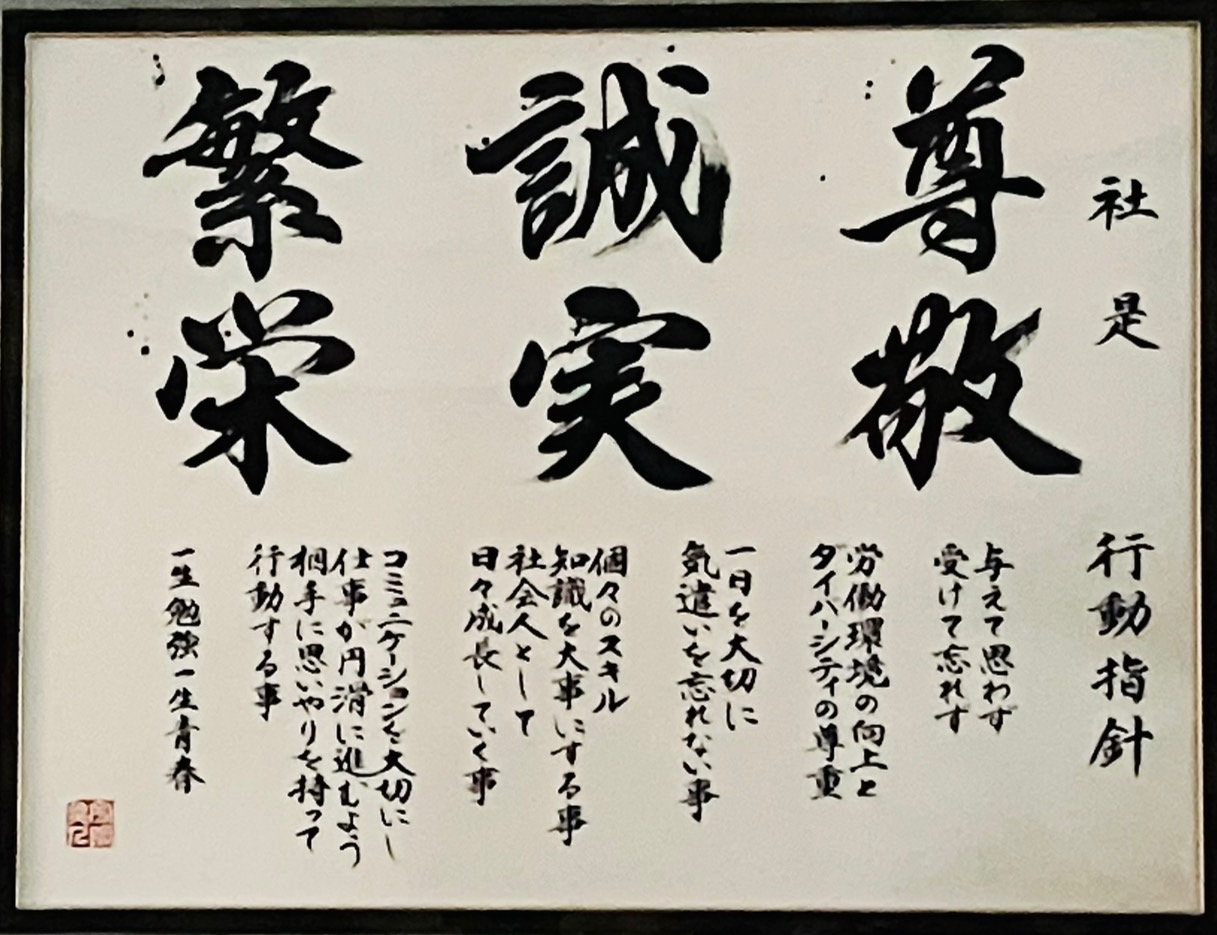 社是
尊敬
誠実
繁栄
行動指針
与えて思わず
受けて忘れず
労働環境の向上と
ダイバーシティの尊重
一日を大切に
気遣いを忘れない事
個々のスキル
知識を大事にする事
社会人として
日々成長していく事
コミュニケーションを大切にし
仕事が円滑に進むよう
相手に思いやりを持って
行動する事
一生勉強一生青春